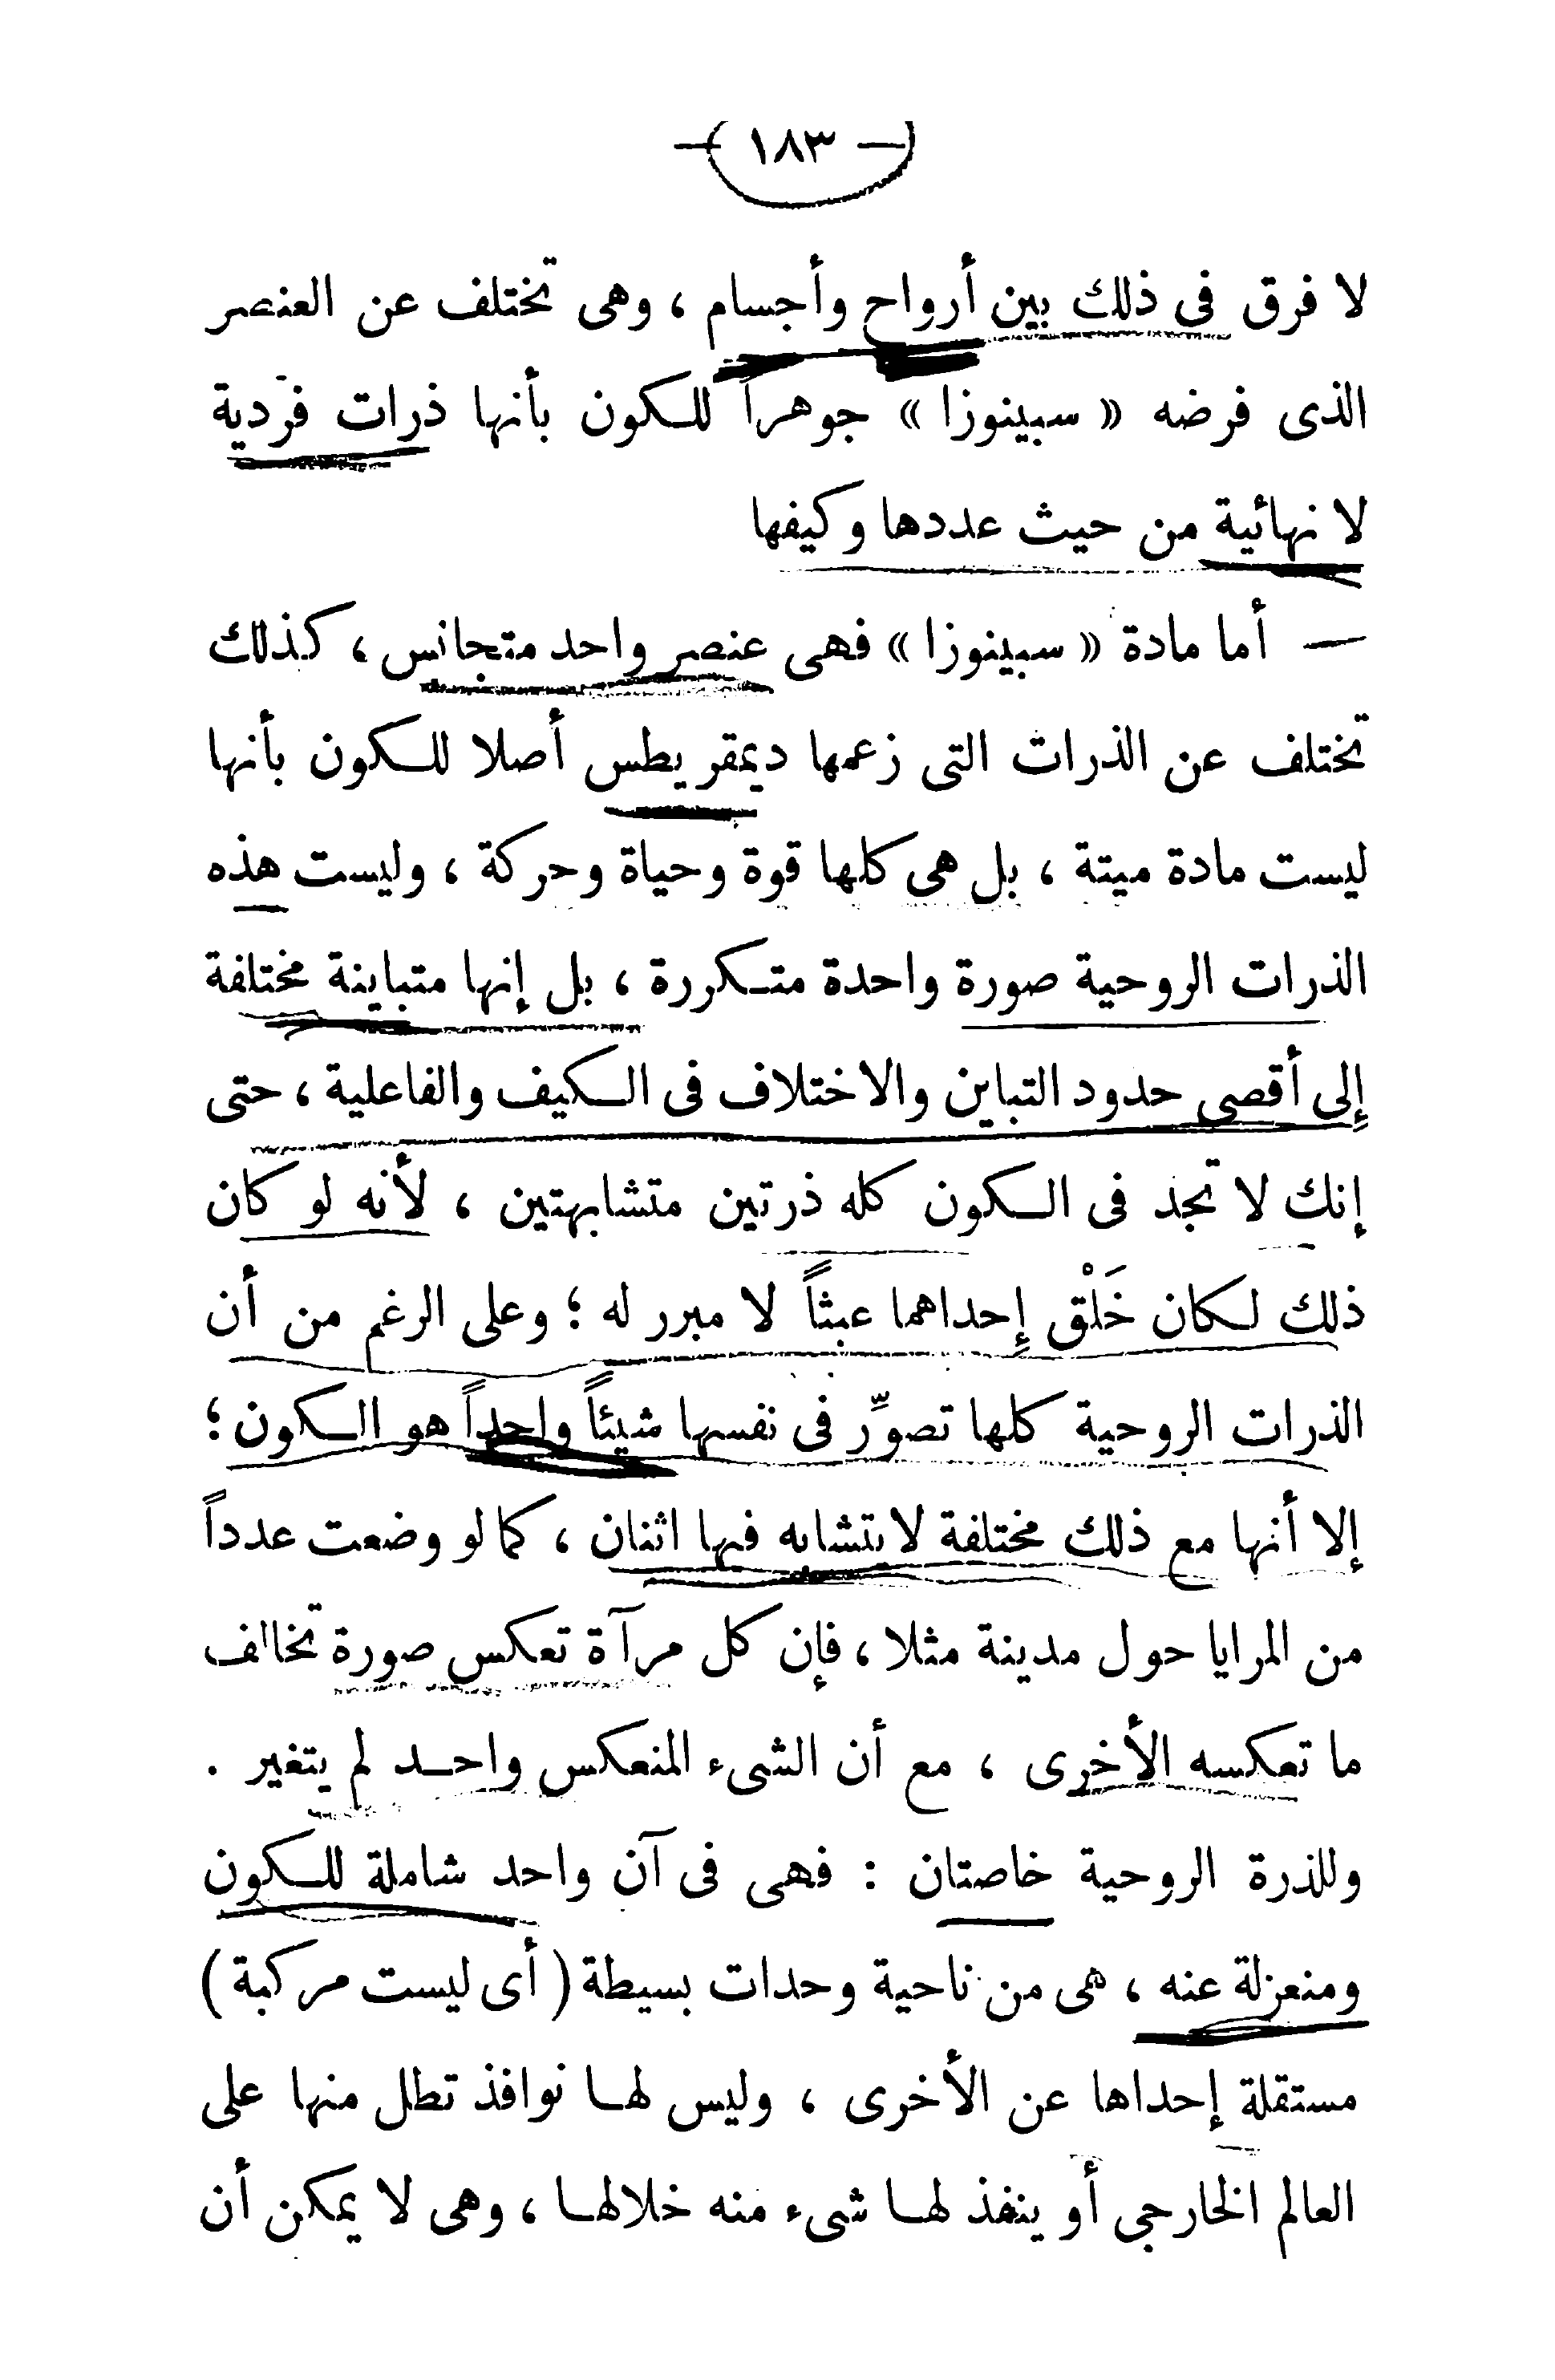 — ١٨٣ —
لا فرق فى ذلك بين أرواح وأجسام ، وهى تختلف عن العنصر
الذى فرضه « سبينوزا » جوهراً للكون بأنها ذرات فردية
لا نهائية من حيث عددها وكيفها
— أما مادة « سبينوزا » فهى عنصر واحد متجانس ، كذلك
تختلف عن الذرات التى زعمها ديمقريطس أصلا للكون بأنها
ليست مادة ميتة ، بل هى كلها قوة وحياة وحركة ، وليست هذه
الذرات الروحية صورة واحدة متكررة ، بل إنها متباينة مختلفة
إلى أقصى حدود التباين والاختلاف فى الكيف والفاعلية ، حتى
إنك لا تجد فى الكون كله ذرتين متشابهتين ، لأنه لو كان
ذلك لكان خَلْق إحداهما عبثاً لا مبرر له ؛ وعلى الرغم من أن
الذرات الروحية كلها تصوِّر فى نفسها شيئاً واحداً هو الكون ؛
إلا أنها مع ذلك مختلفة لا يتشابه فيها اثنان ، كما لو وضعت عدداً
من المرايا حول مدينة مثلا ، فإن كل مرآة تعكس صورة تخالف
ما تعكسه الأخرى ، مع أن الشىء المنعكس واحد لم يتغير .
وللذرة الروحية خاصتان : فهى فى آن واحد شاملة للكون
ومنعزلة عنه ، هى من ناحية وحدات بسيطة ( أى ليست مركبة )
مستقلة إحداها عن الأخرى ، وليس لها نوافذ تطل منها على
العالم الخارجى أو ينفذ لها شىء منه خلالها ، وهى لا يمكن أن